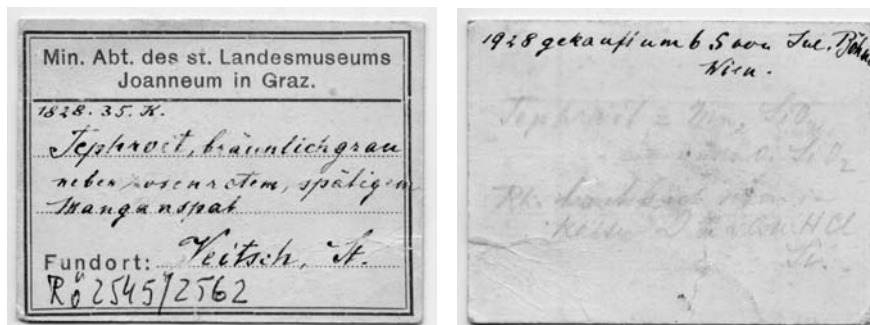 Min. Abt. des st. Landesmuseums
Joanneum in Graz.
1928. 35. K.
Tephroit, bräunlichgrau
neben rosenrotem, spätigem
Manganspat
Fundort: Veitsch, St.
Rö 2545/2562
1928 gekauft um 6 S von Jul. Böhm
Wien.
Tephroit = Mn2 SiO4
SiO2
HCl